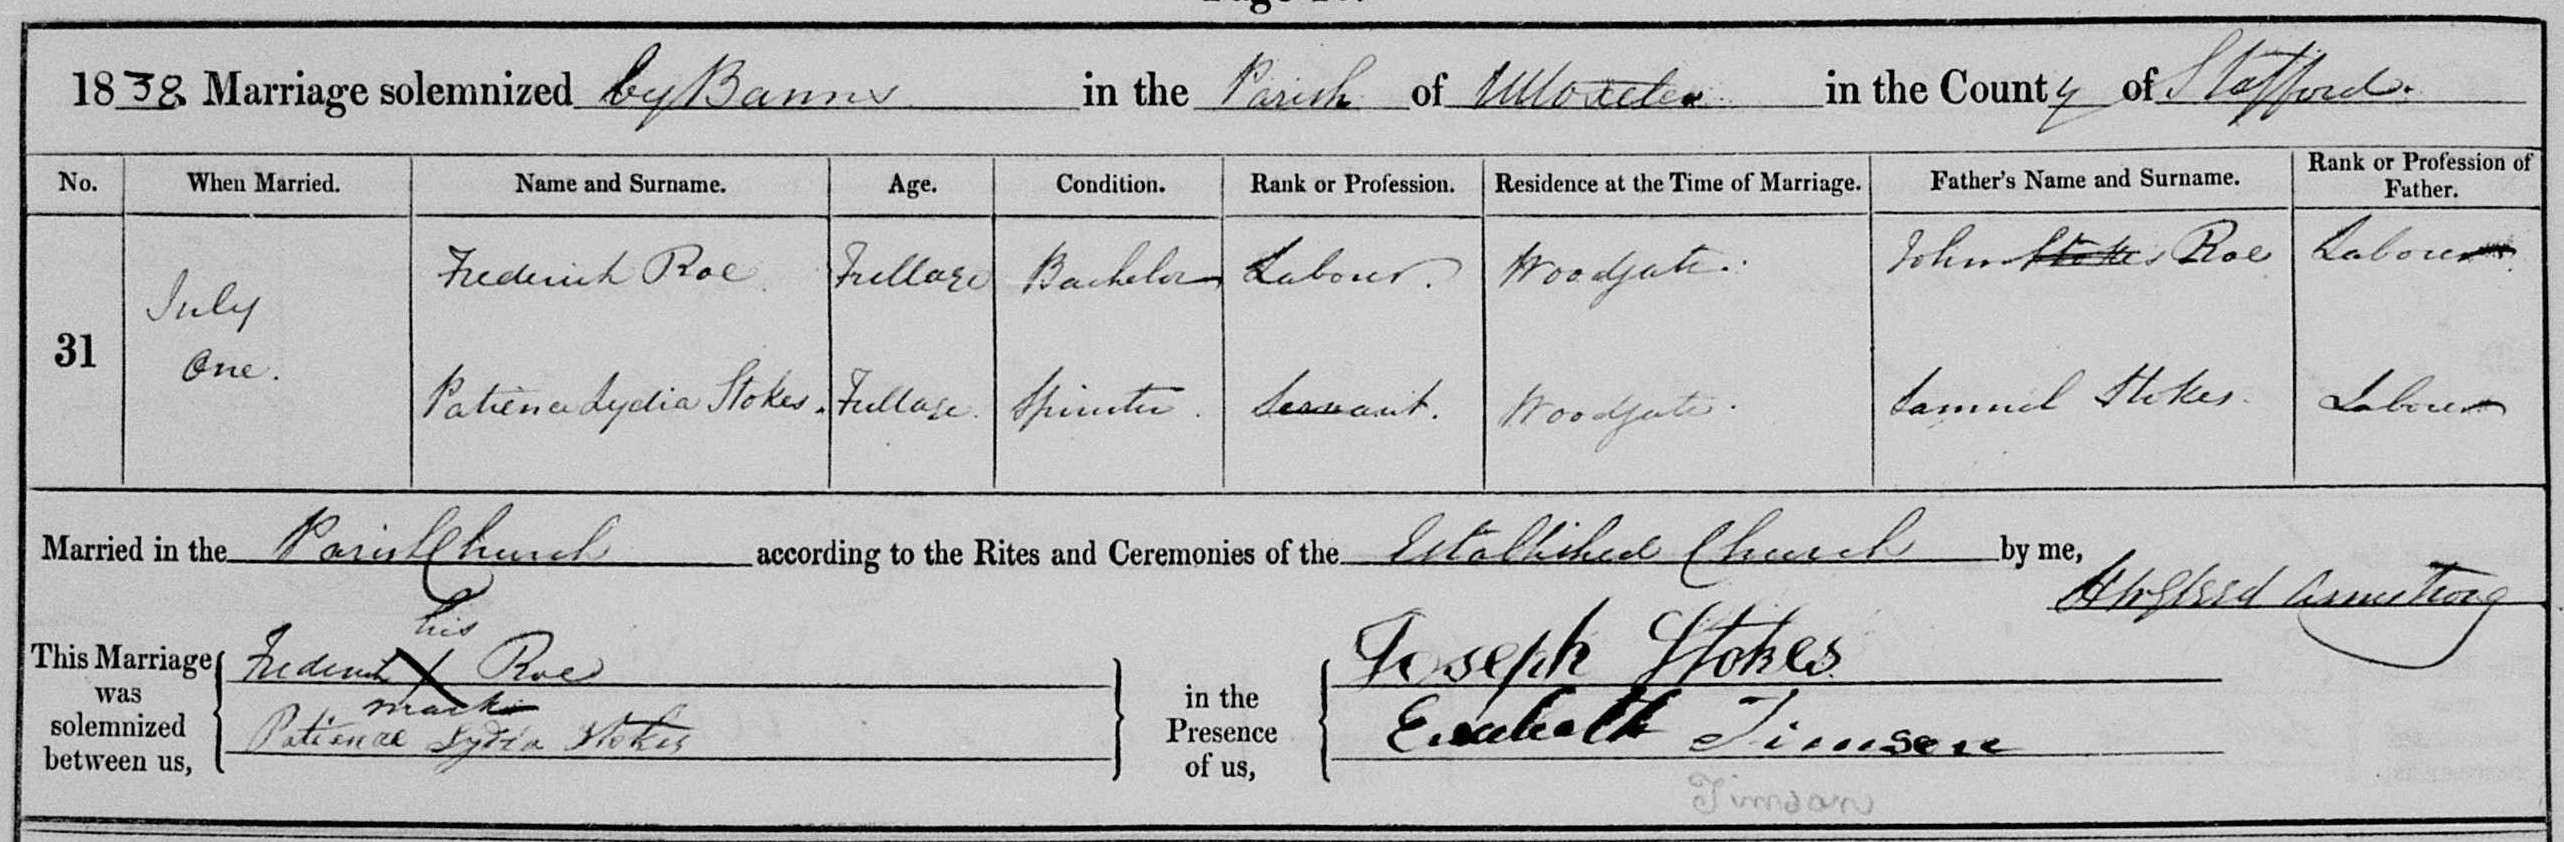 1838 Marriage solemnized by Banns in the Parish of Uttoxeter in the County of Stafford.
No. When Married. Name and Surname. Age. Condition. Rank or Profession. Residence at the Time of Marriage. Father's Name and Surname. Rank or Profession of Father.
31 July One.
Frederick Roe Full age Bachelor Labour. Woodgate. John Stokes Roe Labourer
Patience Lydia Stokes. Full age. Spinster. Servant. Woodgate. Samuel Stokes. Labourer
Married in the Parish Church according to the Rites and Ceremonies of the Established Church by me,
Armstrong
This Marriage was solemnized between us,
his
Frederick X Roe
mark
Patience Lydia Stokes
in the Presence of us,
Joseph Stokes
Elizabeth Timson
Timson